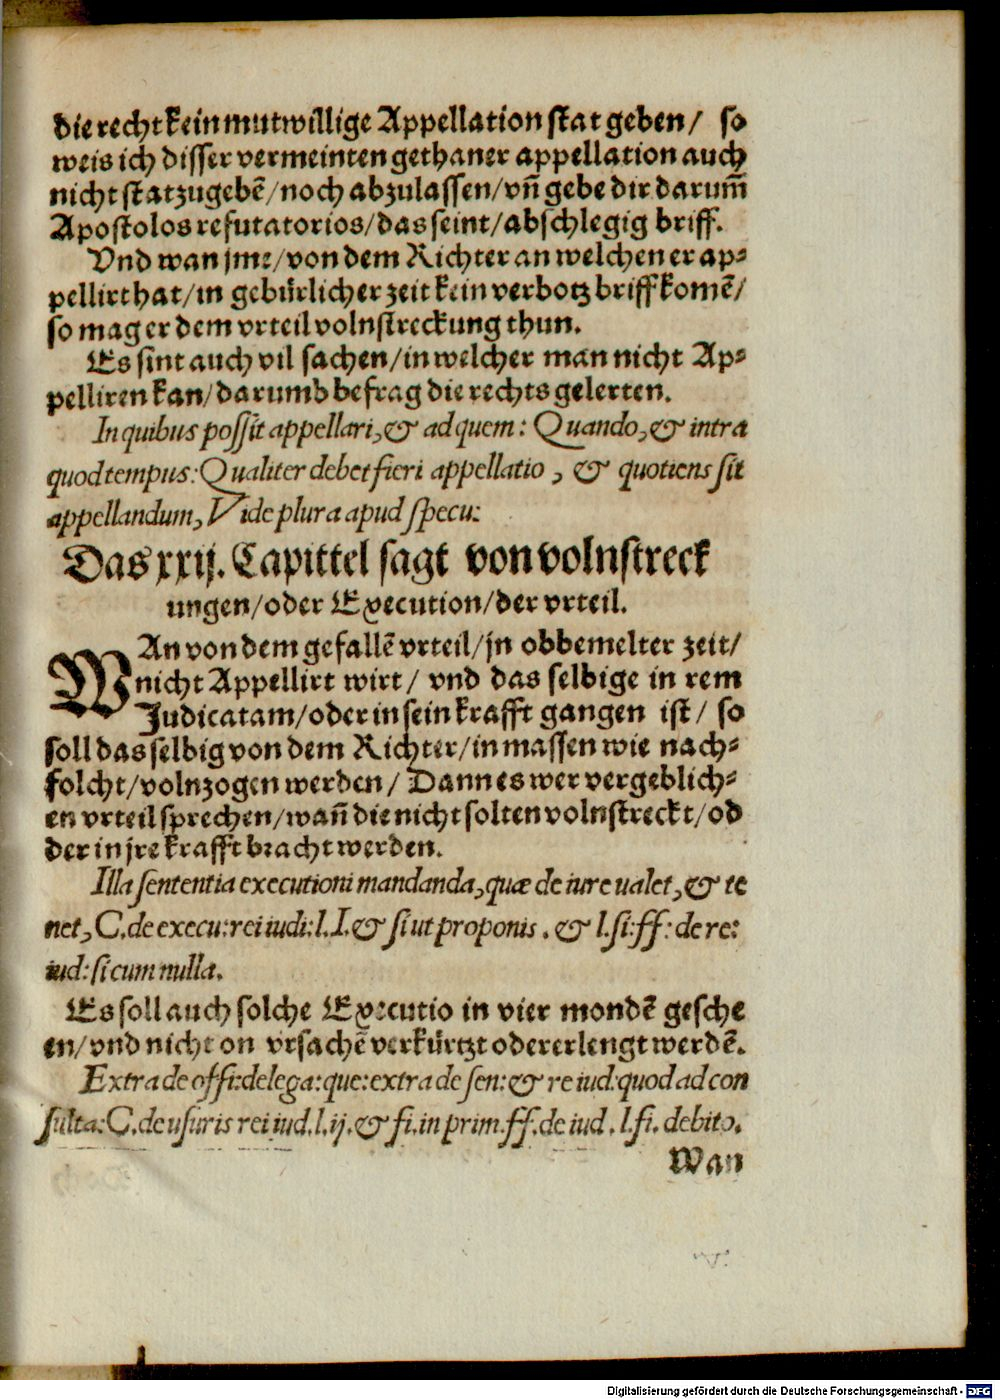 die recht kein mutwillige Appellation stat geben/ so
weis ich disser vermeinten gethaner appellation auch
nicht statzugebē/noch abzulassen/vñ gebe dir darum̃
Apostolos refutatorios/das seint/abschlegig briff.
Vnd wan jme/von dem Richter an welchen er ap⸗
pellirt hat/in gebürlicher zeit kein verbotz briff komē/
so mag er dem vrteil volnstreckung thun.
Es sint auch vil sachen/in welcher man nicht Ap⸗
pelliren kan/darumb befrag die rechts gelerten.
In quibus possit appellari,& ad quem: Quando,& intra
quod tempus: Qualiter debet fieri appellatio, & quotiens sit
appellandum, Vide plura apud specu:
Das xxij. Capittel sagt von volnstreck
ungen/oder Execution/der vrteil.
WAn von dem gefallē vrteil/jn obbemelter zeit/
nicht Appellirt wirt/ vnd das selbige in rem
Judicatam/oder in sein krafft gangen ist/ so
soll das selbig von dem Richter/in massen wie nach⸗
folcht/volnzogen werden/ Dann es wer vergeblich⸗
en vrteil sprechen/wañ die nicht solten volnstreckt/od
der in jre krafft bracht werden.
Illa sententia executioni mandanda,quæ de iure ualet,& te
net, C.de execu:rei iudi:l.I.& si ut proponis. & l.si:ff: de re:
iud: si cum nulla.
Es soll auch solche Executio in vier mondē gesche
en/vnd nicht on vrsachē verkürtzt oder erlengt werdē.
Extra de offi:delega:que:extra de sen:& re iud:quod ad con
sulta: C.de usuris rei iud.l.ij.& fi.in prim.ff.de iud. l.si. debito.
Wan
Digitalisierung gefördert durch die Deutsche Forschungsgemeinschaft - DFG